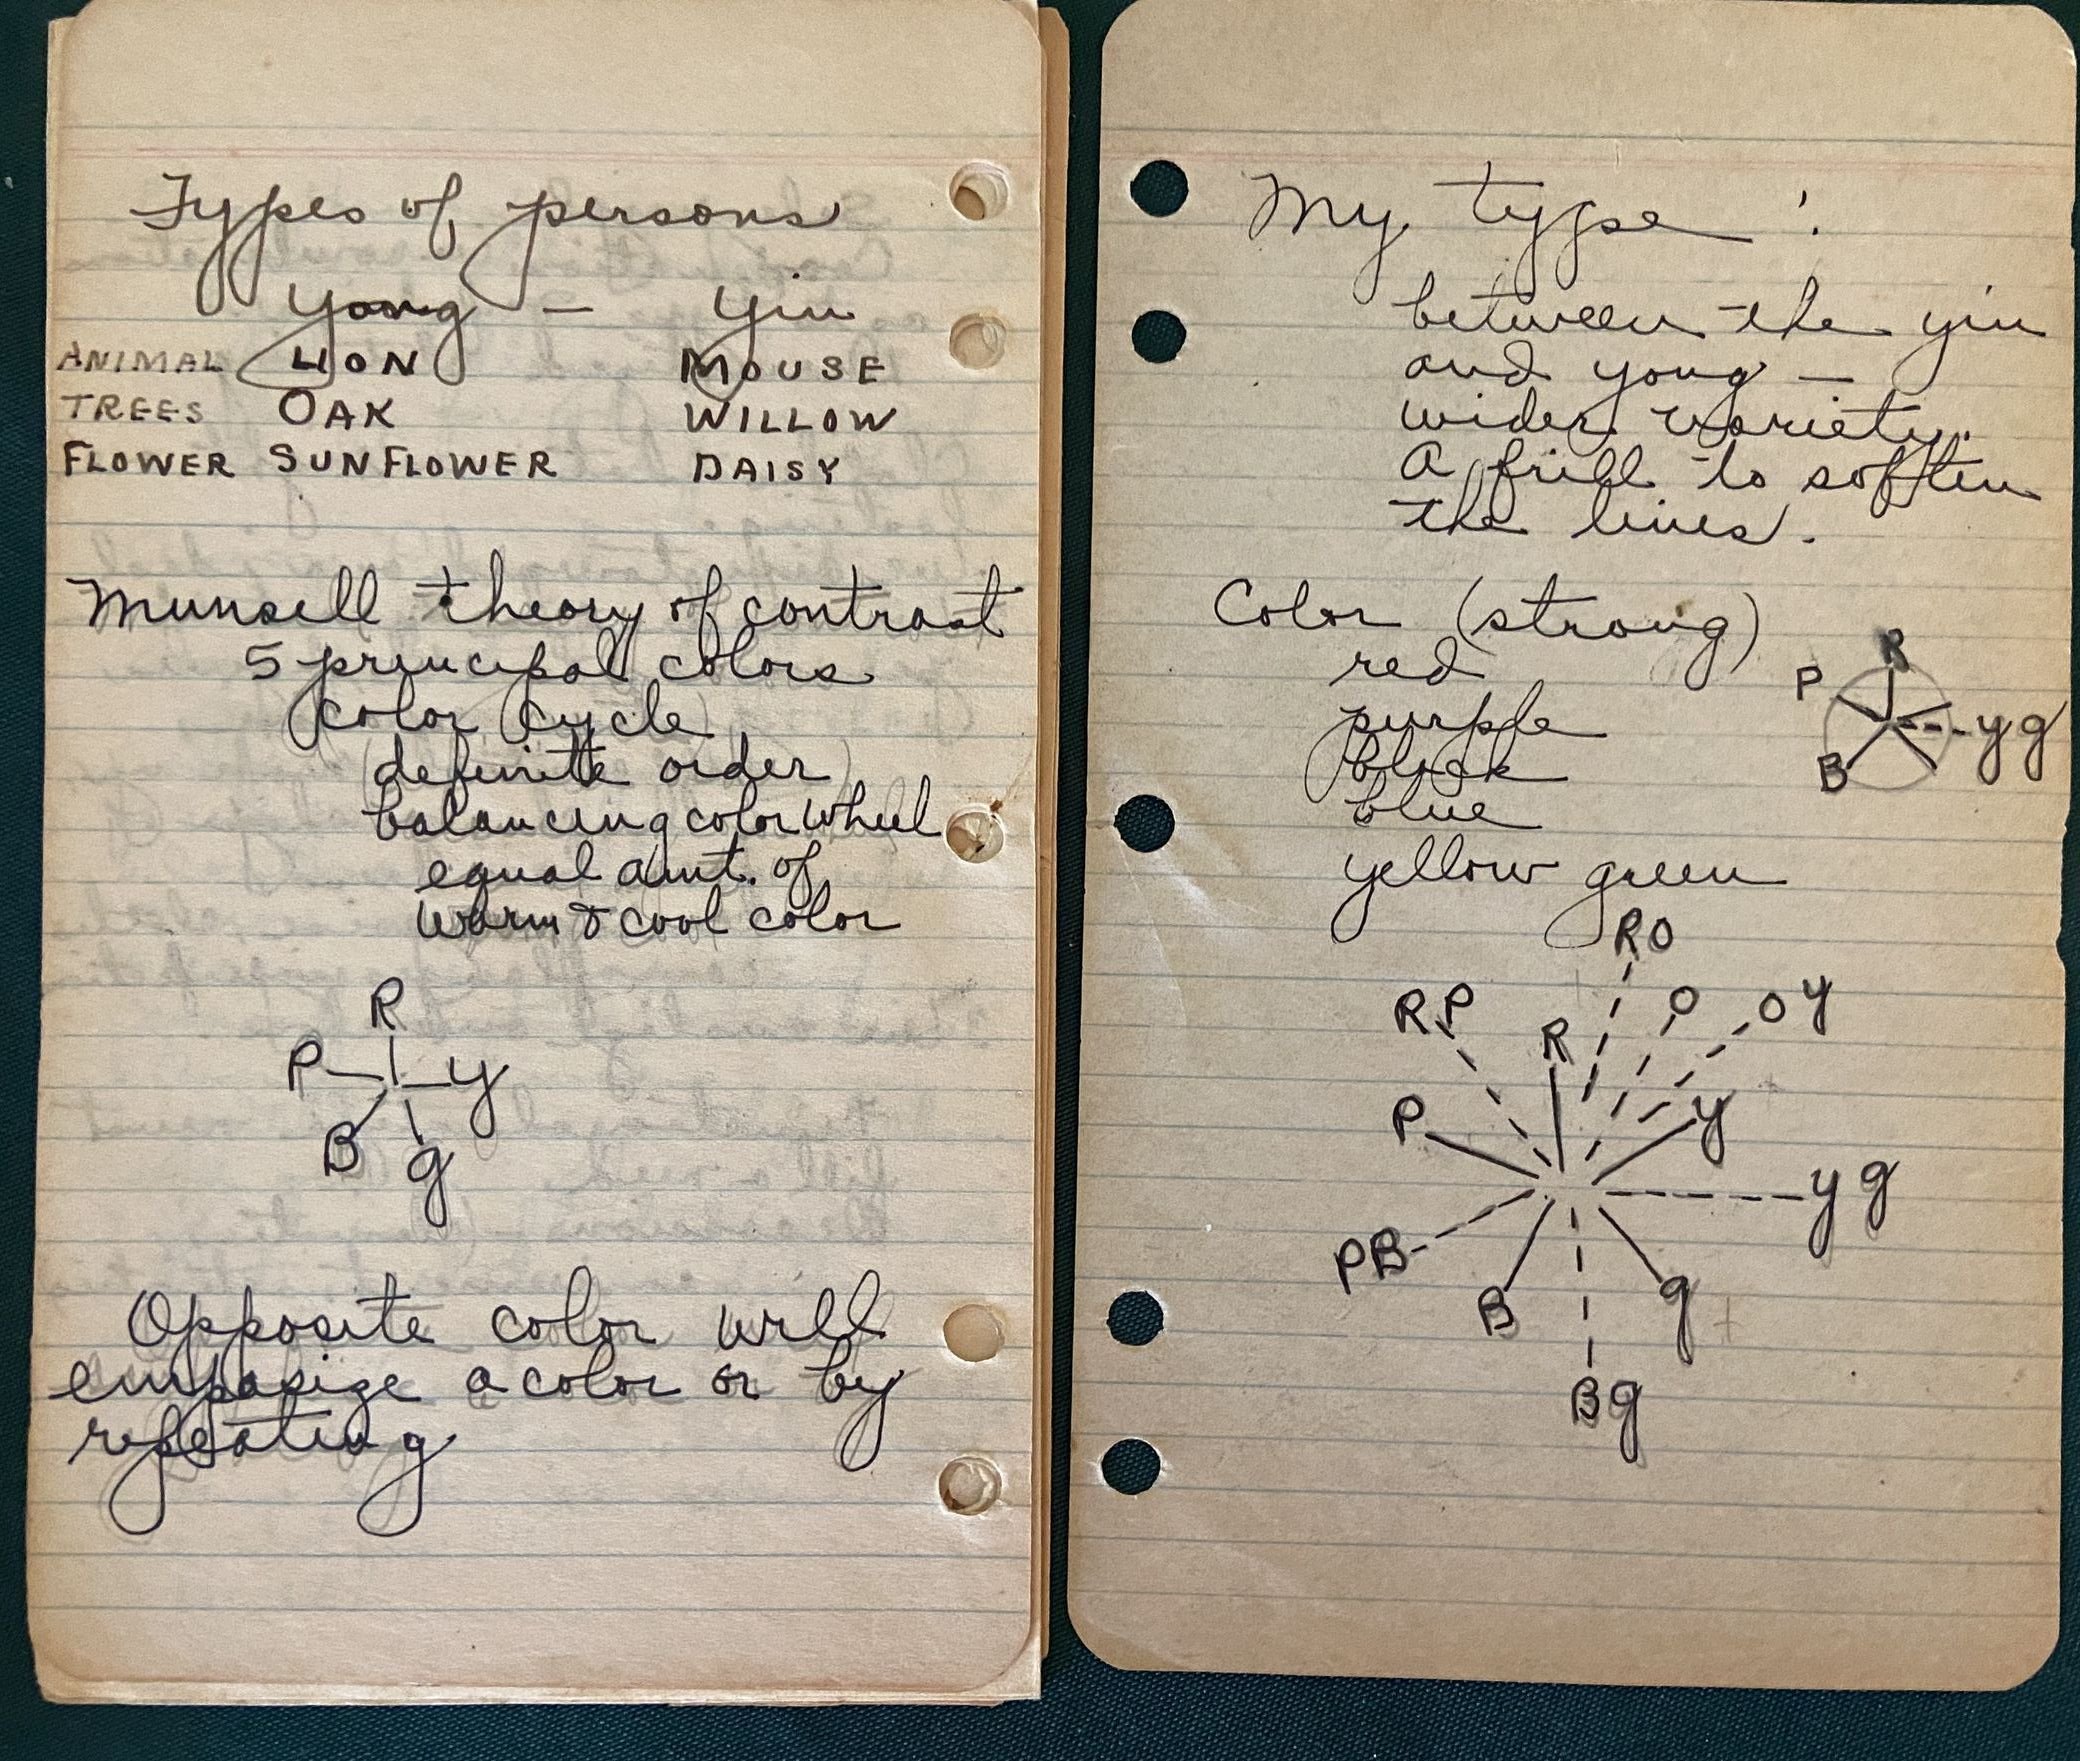 Types of persons
Yong — Yin
ANIMAL LION MOUSE
TREES OAK WILLOW
FLOWER SUNFLOWER DAISY
Munsell theory of contrast
5 principal colors
color cycle
definite order
balancing color wheel
equal amt. of
warm & cool color
R
P y
B g
Opposite color will
empasize a color or by
repeating
My type:
between the yin
and yong —
wider variety.
A frill to soften
the lines.
Color (strong)
red
purple
black
blue
yellow green
R
P
yg
B
RO
RP R O OY
P y
yg
PB
B g
Bg